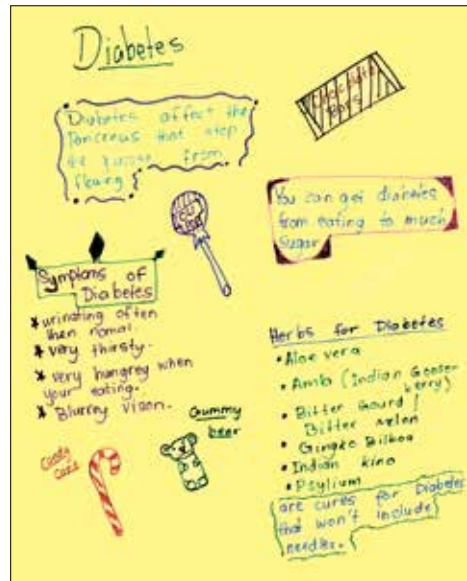 Diabetes
Diabetes affect the
Pancreus that stop
the from
Chocolate
Bars
You can get diabetes
from eating to much
Sugar
Symptoms of
Diabetes
* urinating often
then nomal.
* very thirsty.
* very hungrey when
your eating.
* Blurry Vison.
Gummy
bear
Candy
Cane
Herbs for Diabetes
• Aloe vera
• Amla (Indian Goose-
berry)
• Bitter Gourd /
Bitter melon
• Gingko Biloba
• Indian kino
• Psylium
are cures for Diabetes
that won't include
needles.